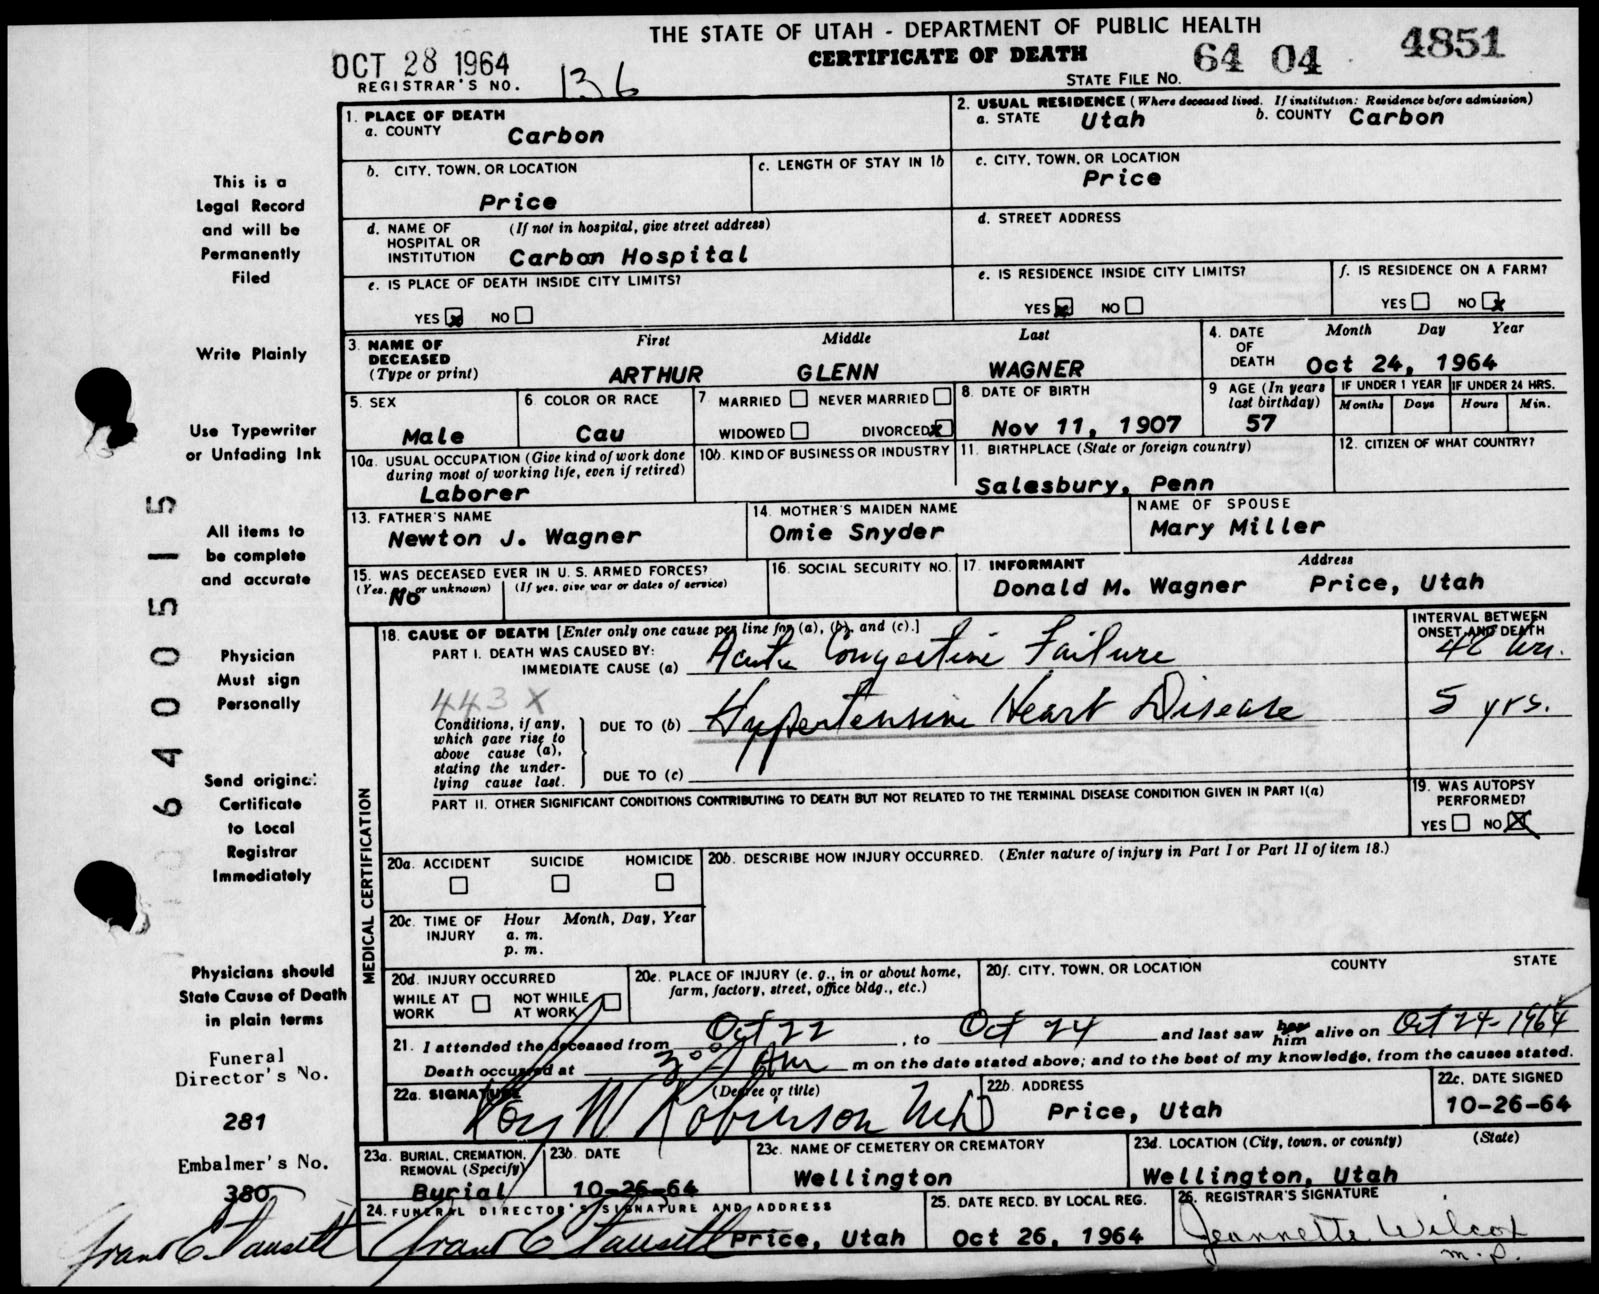 THE STATE OF UTAH - DEPARTMENT OF PUBLIC HEALTH
CERTIFICATE OF DEATH
OCT 28 1964
REGISTRAR'S NO. 136
STATE FILE NO. 64 04 4851
This is a
Legal Record
and will be
Permanently
Filed
Write Plainly
Use Typewriter
or Unfading Ink
All items to
be complete
and accurate
Physician
Must sign
Personally
Send original
Certificate
to Local
Registrar
Immediately
Physicians should
State Cause of Death
in plain terms
Funeral
Director's No.
281
Embalmer's No.
380
Grant C Fausett
64005515
1. PLACE OF DEATH
a. COUNTY Carbon
2. USUAL RESIDENCE (Where deceased lived. If institution: Residence before admission)
a. STATE Utah b. COUNTY Carbon
b. CITY, TOWN, OR LOCATION
Price
c. LENGTH OF STAY IN 1b
c. CITY, TOWN, OR LOCATION
Price
d. NAME OF HOSPITAL OR INSTITUTION (If not in hospital, give street address)
Carbon Hospital
d. STREET ADDRESS
e. IS PLACE OF DEATH INSIDE CITY LIMITS?
YES NO
e. IS RESIDENCE INSIDE CITY LIMITS?
YES NO
f. IS RESIDENCE ON A FARM?
YES NO
3. NAME OF DECEASED (Type or print)
First Middle Last
ARTHUR GLENN WAGNER
4. DATE OF DEATH Month Day Year
Oct 24, 1964
5. SEX
Male
6. COLOR OR RACE
Cau
7 MARRIED NEVER MARRIED
WIDOWED DIVORCED
8. DATE OF BIRTH
Nov 11, 1907
9 AGE (In years last birthday)
57
IF UNDER 1 YEAR IF UNDER 24 HRS.
Months Days Hours Min.
10a. USUAL OCCUPATION (Give kind of work done during most of working life, even if retired)
Laborer
10b. KIND OF BUSINESS OR INDUSTRY
11. BIRTHPLACE (State or foreign country)
Salesbury, Penn
12. CITIZEN OF WHAT COUNTRY?
13. FATHER'S NAME
Newton J. Wagner
14. MOTHER'S MAIDEN NAME
Omie Snyder
NAME OF SPOUSE
Mary Miller
15. WAS DECEASED EVER IN U. S. ARMED FORCES?
(Yes, no, or unknown) (If yes, give war or dates of service)
No
16. SOCIAL SECURITY NO.
17. INFORMANT Address
Donald M. Wagner Price, Utah
MEDICAL CERTIFICATION
18. CAUSE OF DEATH [Enter only one cause per line for (a), (b), and (c).]
INTERVAL BETWEEN ONSET AND DEATH
PART I. DEATH WAS CAUSED BY:
IMMEDIATE CAUSE (a) Acute Congestive Failure 48 hrs.
443 X
Conditions, if any, which gave rise to above cause (a), stating the underlying cause last.
DUE TO (b) Hypertensive Heart Disease 5 yrs.
DUE TO (c)
PART II. OTHER SIGNIFICANT CONDITIONS CONTRIBUTING TO DEATH BUT NOT RELATED TO THE TERMINAL DISEASE CONDITION GIVEN IN PART I(a)
19. WAS AUTOPSY PERFORMED?
YES NO
20a. ACCIDENT SUICIDE HOMICIDE
20b. DESCRIBE HOW INJURY OCCURRED. (Enter nature of injury in Part I or Part II of item 18.)
20c. TIME OF INJURY Hour Month, Day, Year
a. m.
p. m.
20d. INJURY OCCURRED
WHILE AT WORK NOT WHILE AT WORK
20e. PLACE OF INJURY (e. g., in or about home, farm, factory, street, office bldg., etc.)
20f. CITY, TOWN, OR LOCATION COUNTY STATE
21. I attended the deceased from Oct 22, to Oct 24 and last saw her him alive on Oct 24-1964
Death occurred at 3:00 Am m on the date stated above; and to the best of my knowledge, from the causes stated.
22a. SIGNATURE (Degree or title)
Roy W Robinson MD
22b. ADDRESS
Price, Utah
22c. DATE SIGNED
10-26-64
23a. BURIAL, CREMATION, REMOVAL (Specify)
Burial
23b. DATE
10-26-64
23c. NAME OF CEMETERY OR CREMATORY
Wellington
23d. LOCATION (City, town, or county) (State)
Wellington, Utah
24. FUNERAL DIRECTOR'S SIGNATURE AND ADDRESS
Grant C Fausett Price, Utah
25. DATE RECD. BY LOCAL REG.
Oct 26, 1964
26. REGISTRAR'S SIGNATURE
Jeannette Wilcox
m.p.